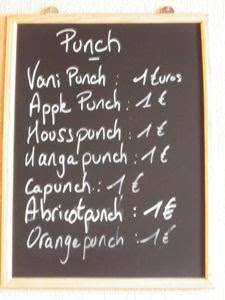 Punch
Vani Punch : 1 Euros
Apple Punch : 1 €
Housspunch : 1 €
Mangapunch : 1 €
Capunch : 1 €
Abricotpunch : 1 €
Orangepunch : 1 €